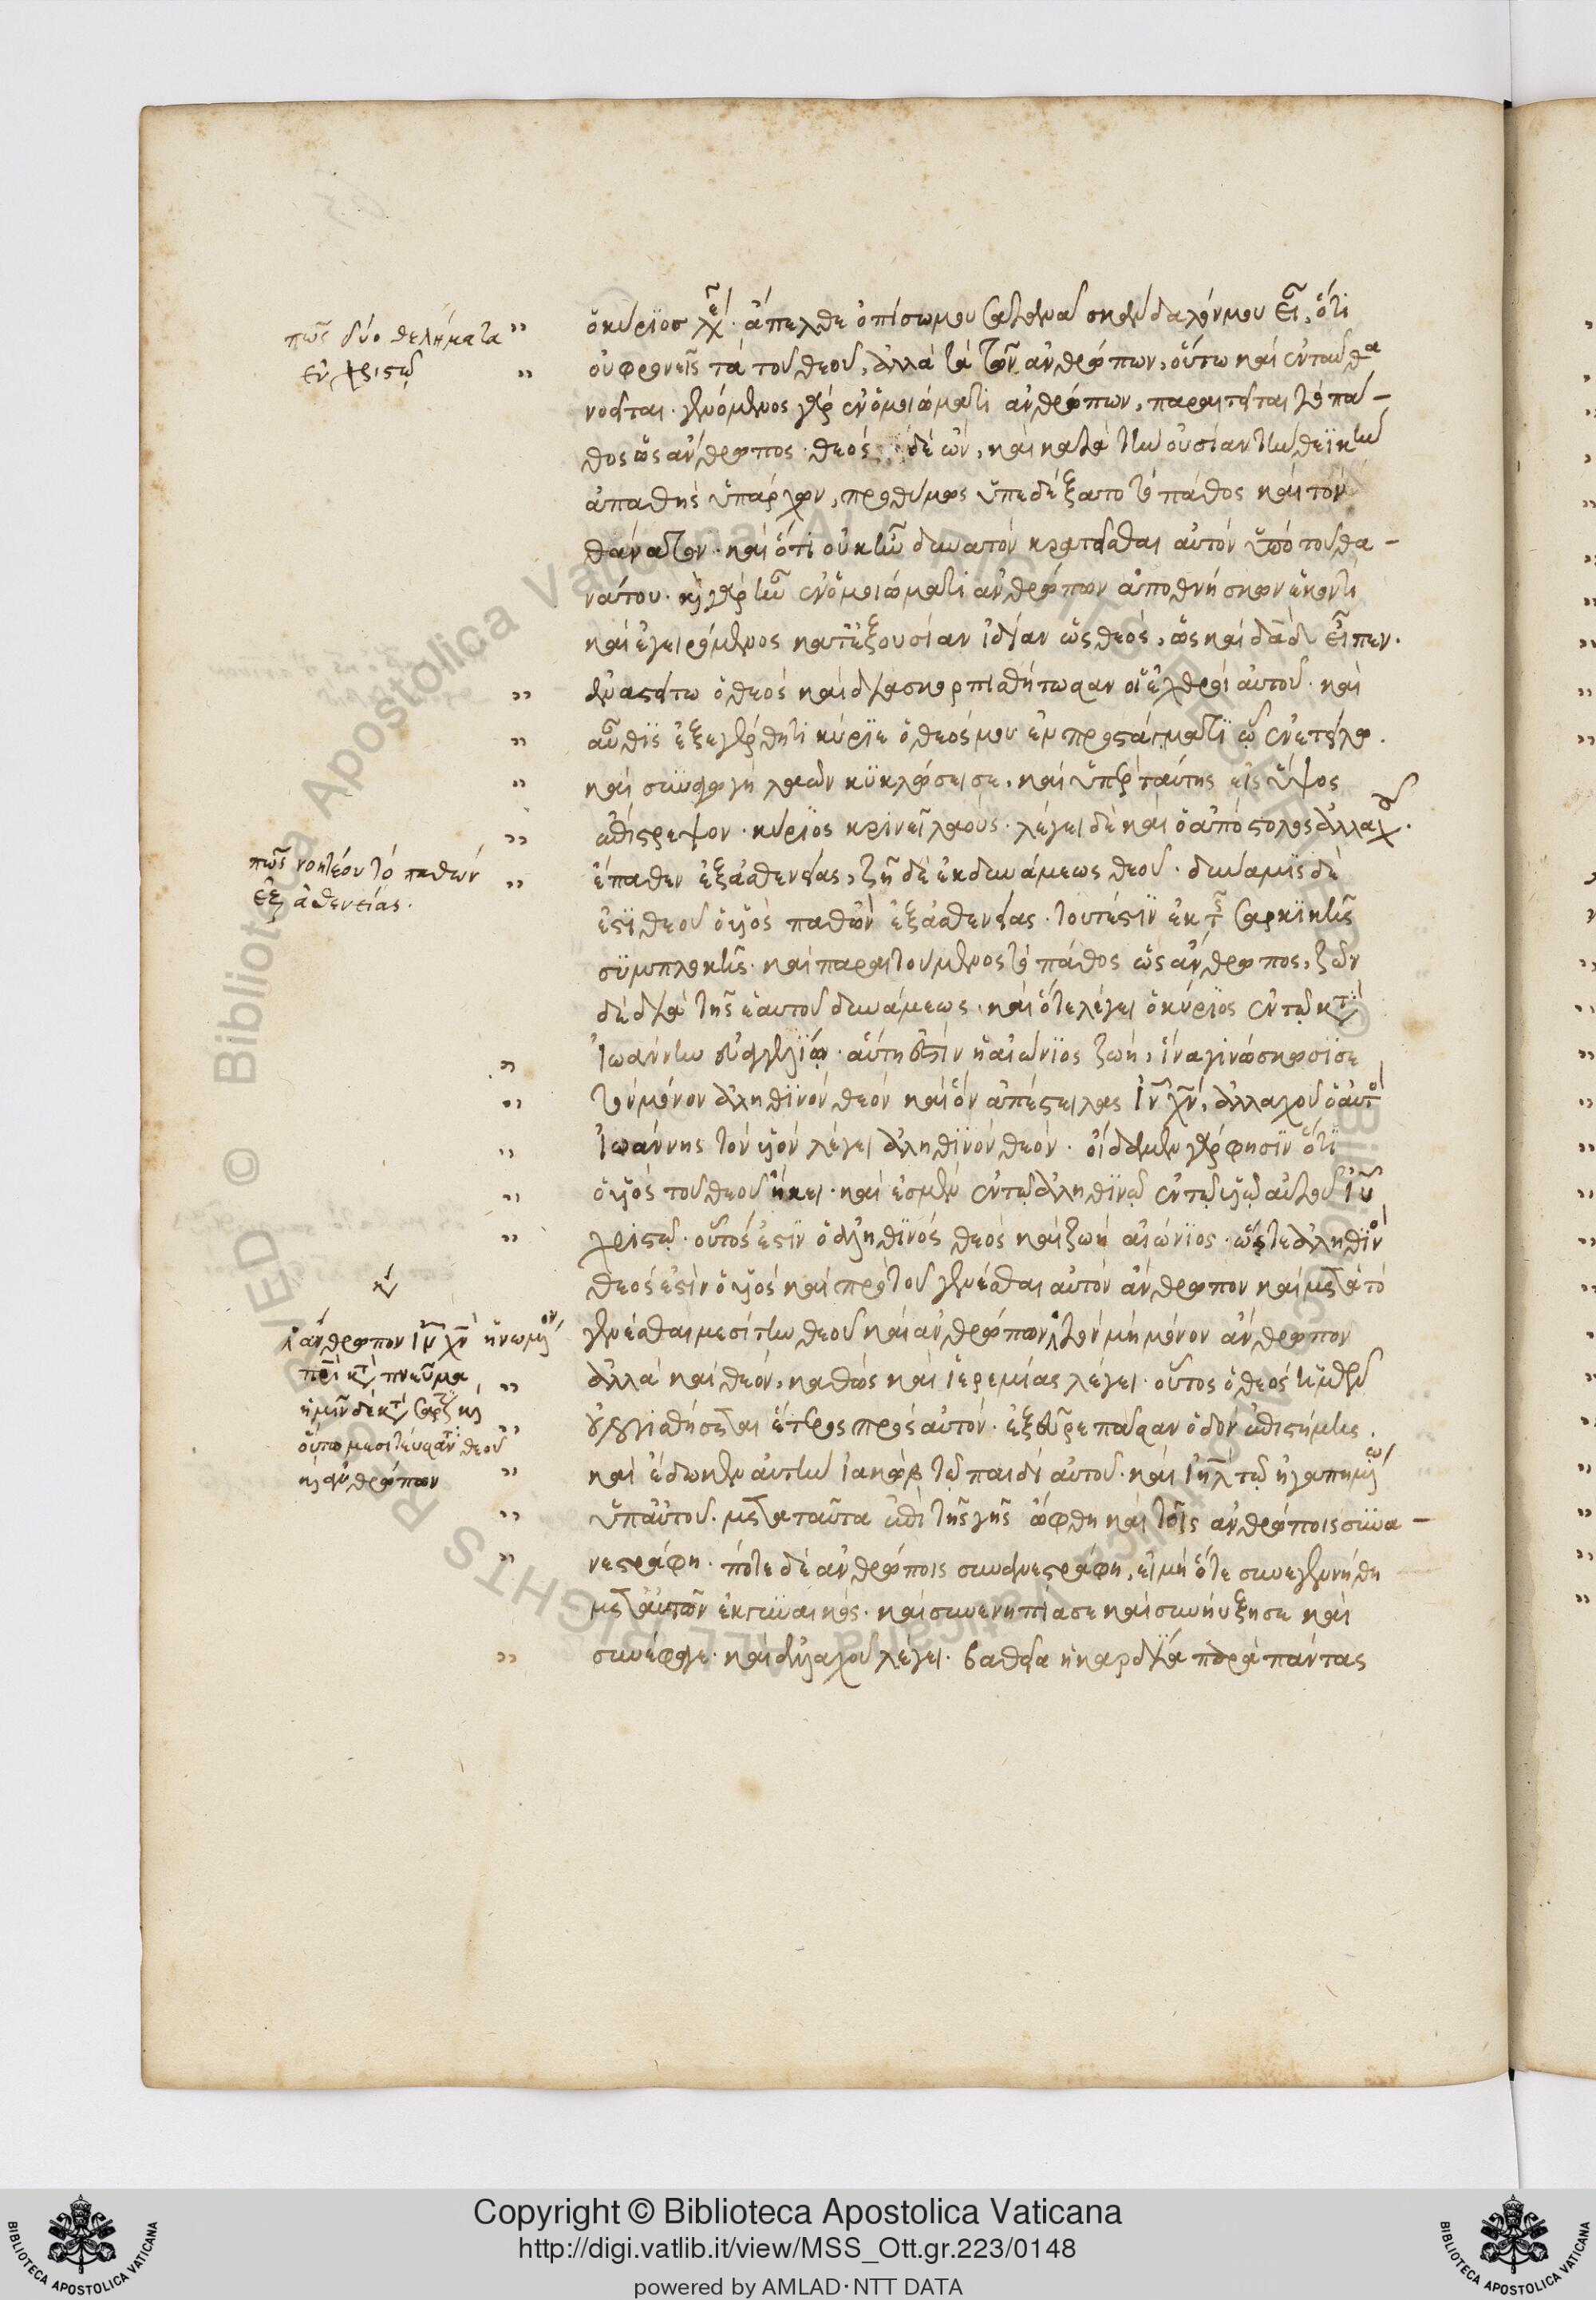 ὁ κύριος λέγει· ἄπελθε ὀπίσω μου σατανᾶ σκάνδαλόν μου εἶ, ὅτι
πῶς δύο θελήματα
ἐν χριστῷ
οὐ φρονεῖς τὰ τοῦ θεοῦ, ἀλλὰ τὰ τῶν ἀνθρώπων, οὕτω καὶ ἐνταῦθα
νοεῖται· γενόμενος γὰρ ἐν ὁμοιώματι ἀνθρώπων, παραιτεῖται τὸ πά-
θος ὡς ἄνθρωπος· θεὸς δὲ ὢν, καὶ κατὰ τὴν οὐσίαν τὴν θεϊκὴν
ἀπαθὴς ὑπάρχων, προθύμως ὑπεδέξατο τὸ πάθος καὶ τὸν
θάνατον· καὶ ὅτι οὐκ ἦν δυνατὸν κρατεῖσθαι αὐτὸν ὑπὸ τοῦ θα-
νάτου· καὶ γὰρ ἦν ἐν ὁμοιώματι ἀνθρώπων ἀποθνήσκων ἑκοντὶ
καὶ ἐγειρόμενος κατ' ἐξουσίαν ἰδίαν ὡς θεός, ὡς καὶ δᾱδ εἶπεν·
ἀναστήτω ὁ θεὸς καὶ διασκορπισθήτωσαν οἱ ἐχθροὶ αὐτοῦ· καὶ
αὖθις ἐξεγέρθητι κύριε ὁ θεός μου ἐν προστάγματι ᾧ ἐνετείλω·
καὶ συναγωγὴ λαῶν κυκλώσει σε, καὶ ὑπὲρ ταύτης εἰς ὕψος
ἐπίστρεψον· κύριος κρινεῖ λαούς· λέγει δὲ καὶ ὁ ἀπόστολος ἀλλαχοῦ·
πῶς νοητέον τὸ παθὼν
ἐξ ἀσθενείας·
ἔπαθεν ἐξ ἀσθενείας, ζῇ δὲ ἐκ δυνάμεως θεοῦ· δύναμις δὲ
ἐστὶ θεοῦ ὁ υἱὸς παθὼν ἐξ ἀσθενείας· τουτέστιν ἐκ τῆς σαρκικῆς
συμπλοκῆς· καὶ παραιτούμενος τὸ πάθος ὡς ἄνθρωπος, ζῶν
δὲ διὰ τῆς ἑαυτοῦ δυνάμεως· καὶ ὅτε λέγει ὁ κύριος ἐν τῷ κατὰ
Ἰωάννην εὐαγγελίῳ· αὕτη ἐστὶν ἡ αἰώνιος ζωή, ἵνα γινώσκωσί σε
τὸν μόνον ἀληθινὸν θεὸν καὶ ὃν ἀπέστειλας ἰν χν, ἀλλαχοῦ ὁ αὐτὸς
Ἰωάννης τὸν υἱὸν λέγει ἀληθινὸν θεόν· οἴδαμεν γάρ φησιν ὅτι
ὁ υἱὸς τοῦ θεοῦ ἥκει· καὶ ἐσμὲν ἐν τῷ ἀληθινῷ ἐν τῷ υἱῷ αὐτοῦ ἰυ
χριστῷ· οὗτός ἐστιν ὁ ἀληθινὸς θεὸς καὶ ζωὴ αἰώνιος· ὥστε ἀληθινὸς
θεός ἐστιν ὁ υἱὸς καὶ πρὸ τοῦ γενέσθαι αὐτὸν ἄνθρωπον καὶ μετὰ τὸ
γενέσθαι μεσίτην θεοῦ καὶ ἀνθρώπων τὸν μὴ μόνον ἄνθρωπον
ἄνθρωπον ἰν χν ἡνωμένον
πρὶ κατὰ πνεῦμα
ἡμῖν δὲ κατὰ σάρκα καὶ
οὕτω μεσιτεύσαντα θεοῦ
καὶ ἀνθρώπων
ἀλλὰ καὶ θεόν, καθὼς καὶ ἱερεμίας λέγει· οὗτος ὁ θεὸς ἡμῶν
οὐ λογισθήσεται ἕτερος πρὸς αὐτόν· ἐξεῦρε πᾶσαν ὁδὸν ἐπιστήμης·
καὶ ἔδωκεν αὐτὴν ἰακὼβ τῷ παιδὶ αὐτοῦ· καὶ ἰηλ τῷ ἠγαπημένῳ
ὑπ' αὐτοῦ· μετὰ ταῦτα ἐπὶ τῆς γῆς ὤφθη καὶ τοῖς ἀνθρώποις συνα-
νεστράφη· πότε δὲ ἀνθρώποις συνανεστράφη, εἰ μὴ ὅτε συνεγεννήθη
μετ' αὐτῶν ἐκ γυναικός· καὶ συνενηπίασε καὶ συνηύξησε καὶ
συνέφαγε· καὶ ἀλλαχοῦ λέγει· βαθεῖα ἡ καρδία παρὰ πάντας
Copyright © Biblioteca Apostolica Vaticana
http://digi.vatlib.it/view/MSS_Ott.gr.223/0148
powered by AMLAD·NTT DATA